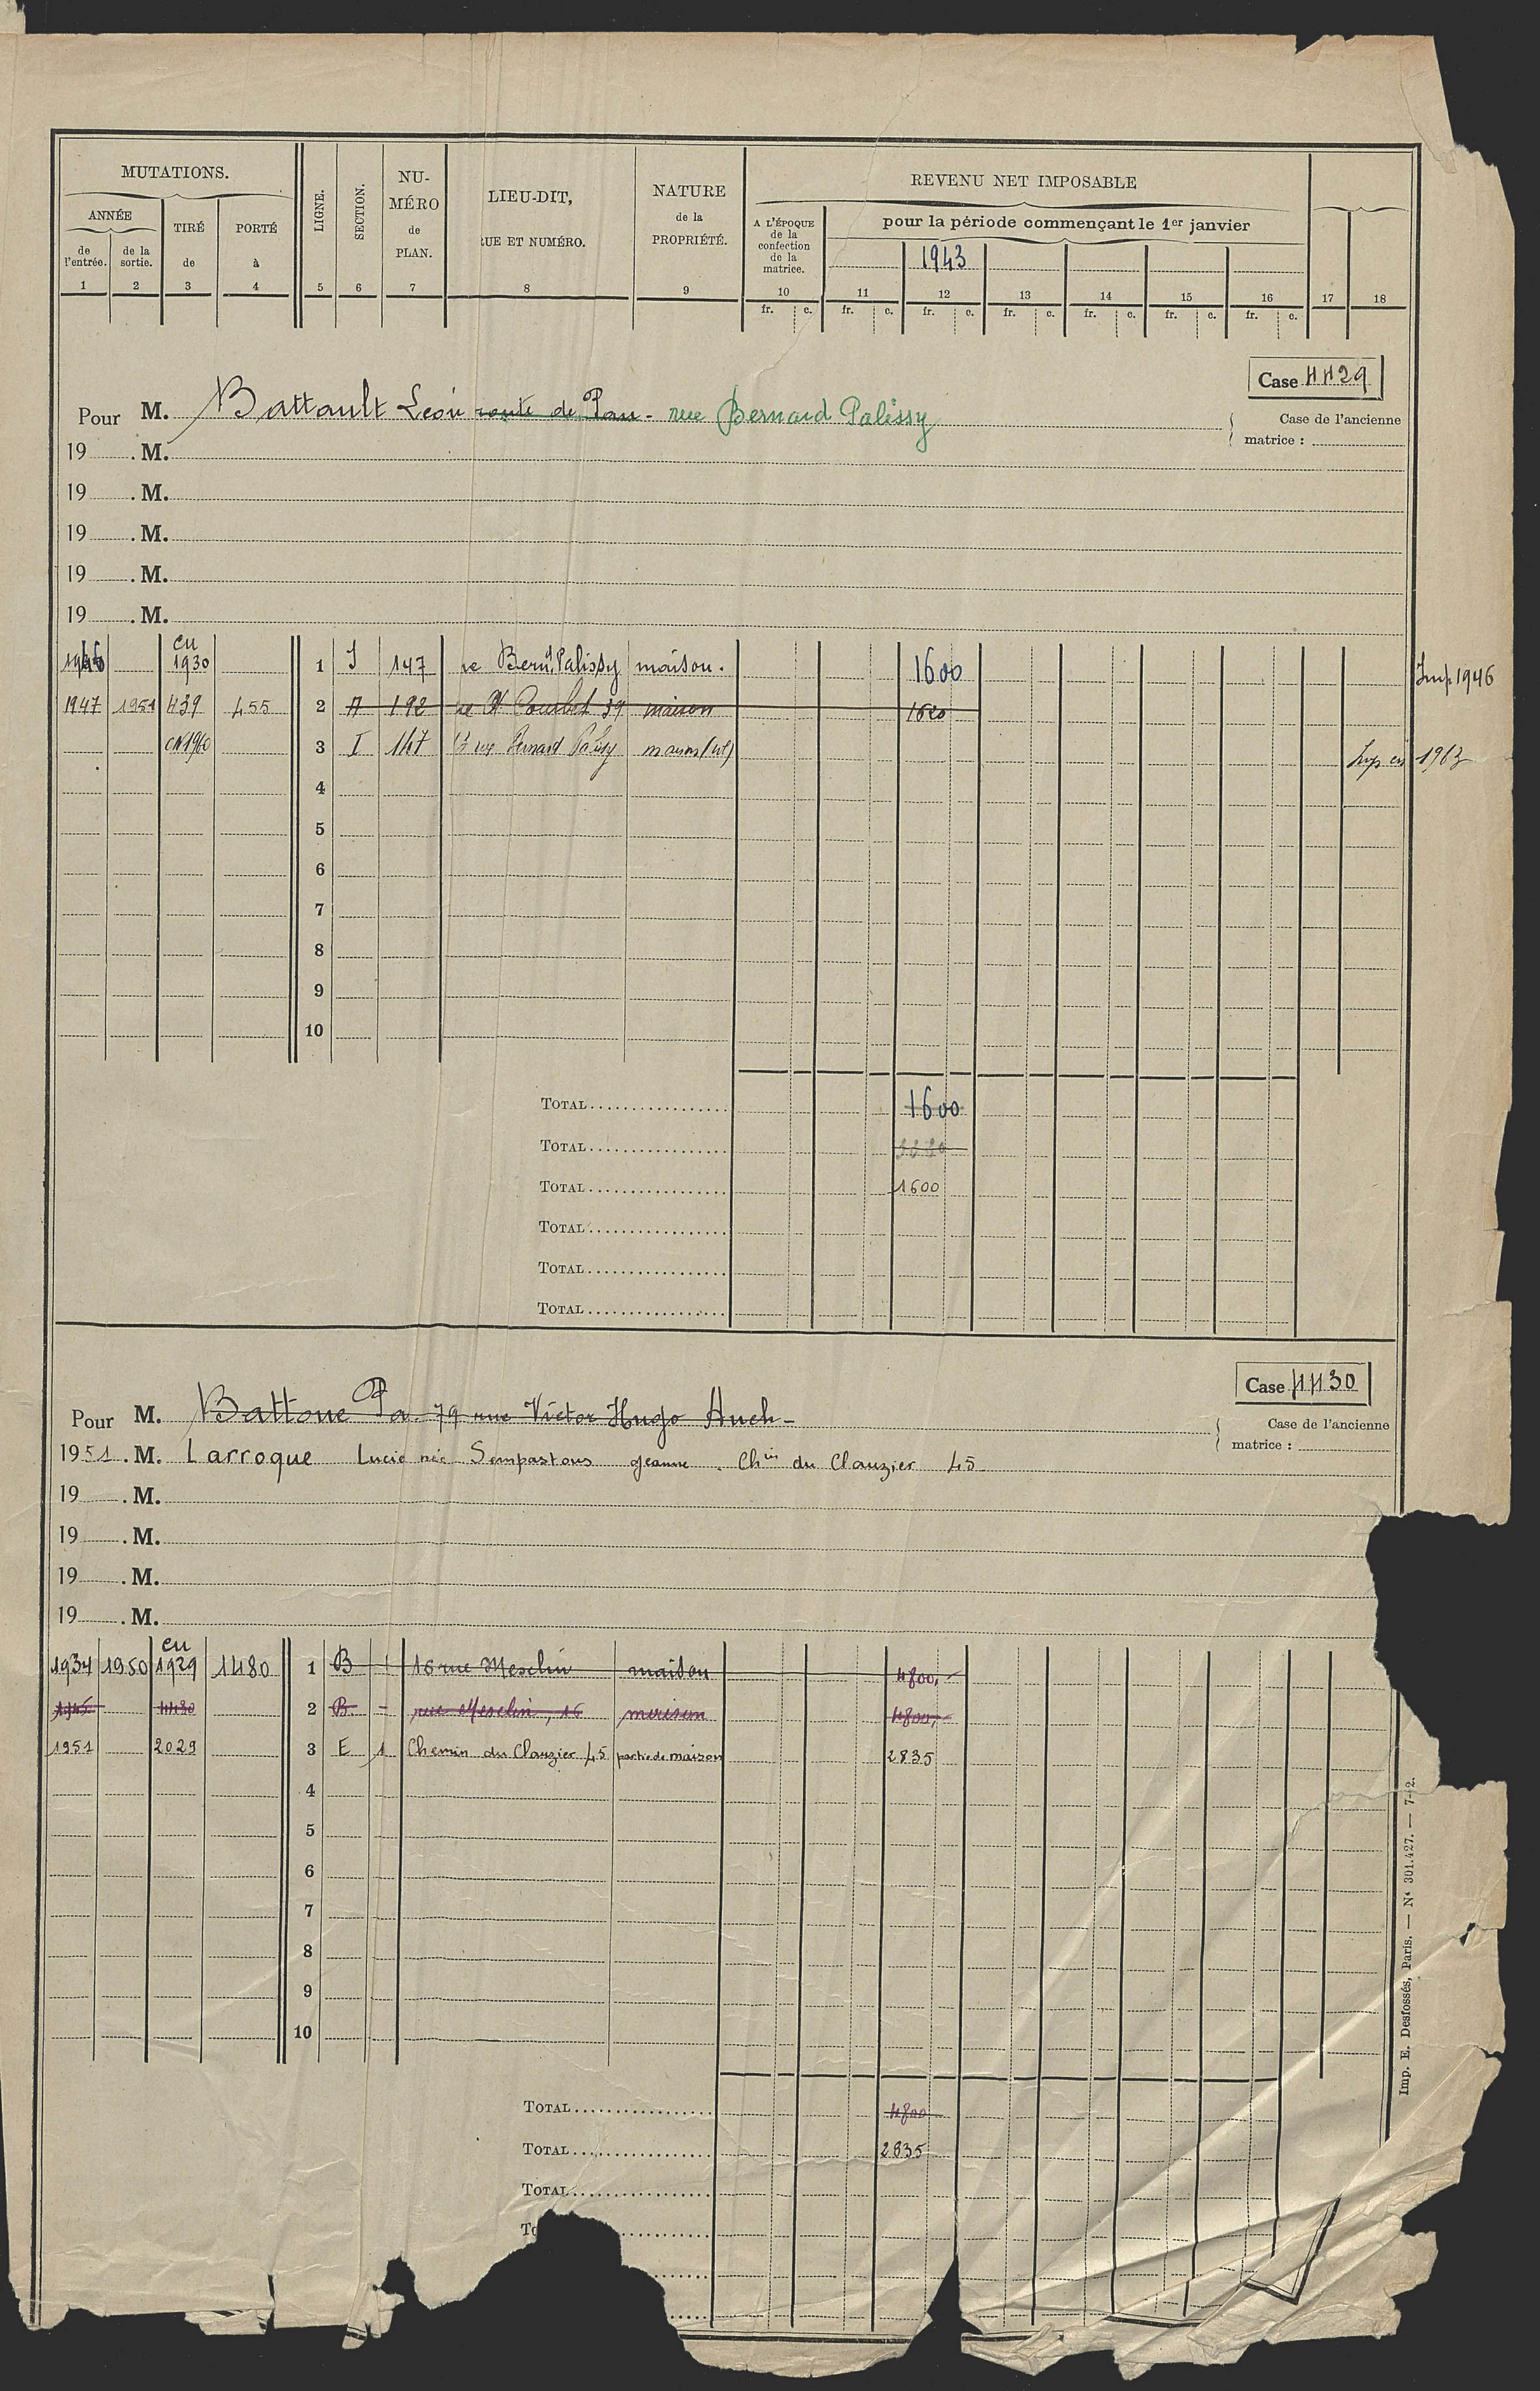 MUTATIONS.
ANNÉE
de l'entrée.
de la sortie.
TIRÉ de
PORTÉ à
LIGNE.
SECTION.
NU-MÉRO de PLAN.
LIEU-DIT,
RUE ET NUMÉRO.
NATURE de la PROPRIÉTÉ.
REVENU NET IMPOSABLE
A L'ÉPOQUE de la confection de la matrice.
pour la période commençant le 1er janvier
1943
1 2 3 4 5 6 7 8 9 10 11 12 13 14 15 16 17 18
fr. c. fr. c. fr. c. fr. c. fr. c. fr. c. fr. c.
Case 4429
Pour M. Battault Léon route de Pau - rue Bernard Palissy
Case de l'ancienne matrice :
19 . M.
19 . M.
19 . M.
19 . M.
19 . M.
1946 en 1930 1 I 147 rue Bern. Palissy maison. 1600 Imp. 1946
1947 1951 439 455 2 A 192 39 maison 1620
CN 1960 3 I 147 13 rue Bernard Palissy maison Imp en 1963
4
5
6
7
8
9
10
TOTAL 1600
TOTAL
TOTAL 1600
TOTAL
TOTAL
TOTAL
Case 4430
Pour M. Battone Pa. 79 rue Victor Hugo Auch -
Case de l'ancienne matrice :
1951. M. Larroque Lucie née Sempastous Jeanne. Chin du Clauzier 45
19 . M.
19 . M.
19 . M.
19 . M.
1934 1950 en 1929 1480 1 B 16 rue Mesclin maison 4800,-
1945 4480 2 B - rue Mesclin, 16 maison 4800,-
1951 2029 3 E 1 Chemin du Clauzier 45 partie de maison 2835
4
5
6
7
8
9
10
TOTAL 4800
TOTAL 2835
TOTAL
To
Imp. E. Desfossés, Paris. — Nt 301.427. — 7-42.